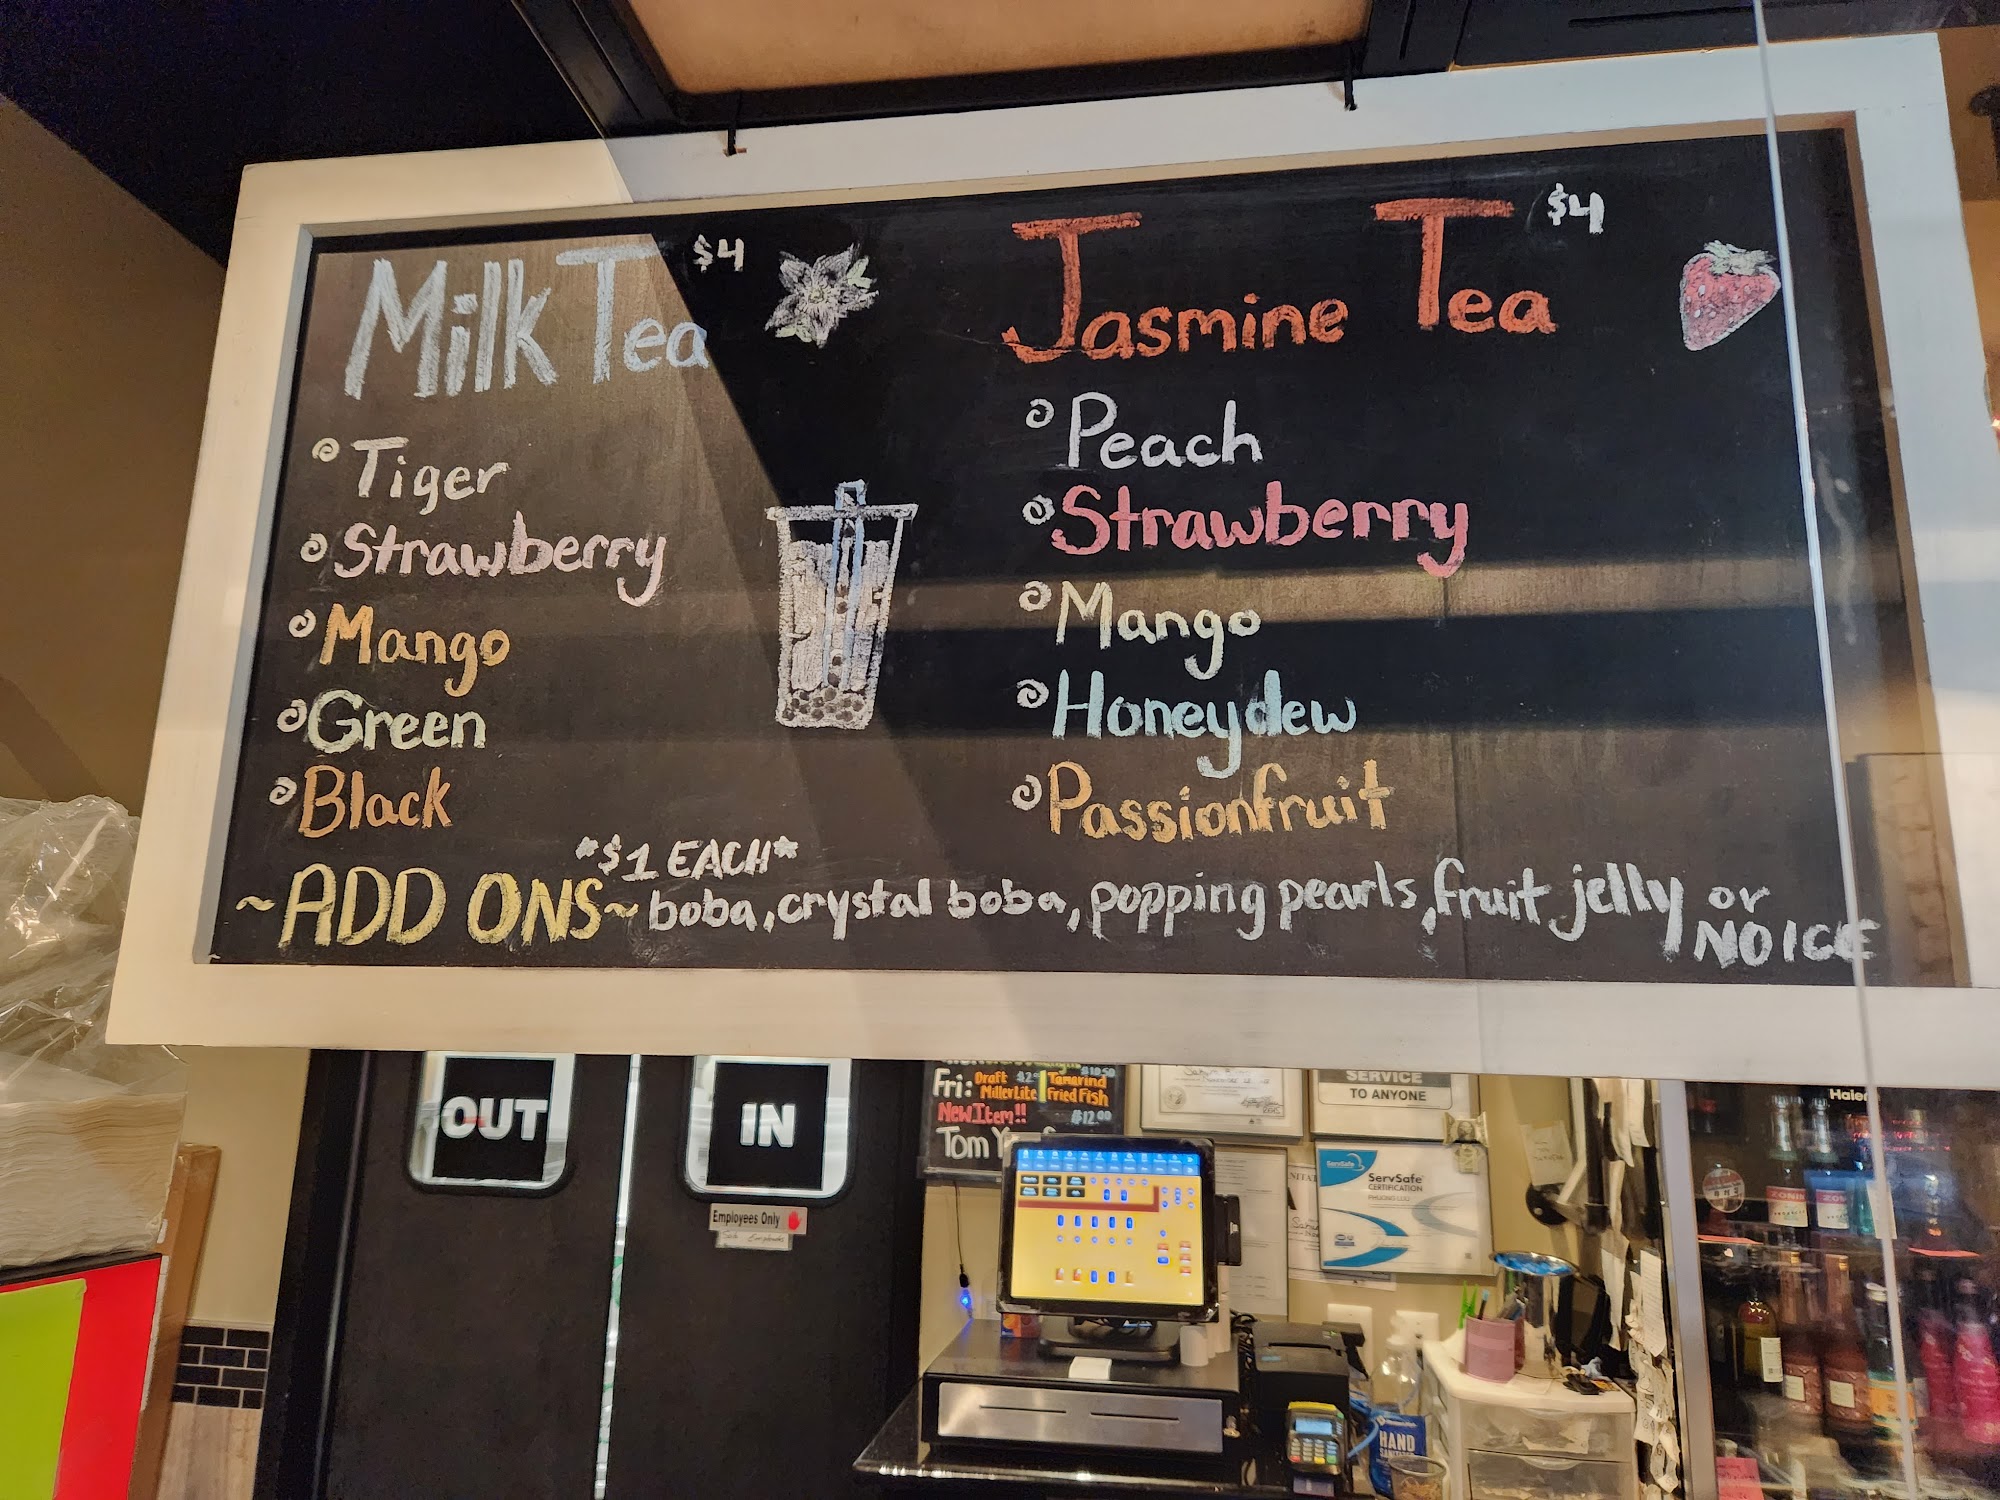 Milk Tea $4
Tiger
Strawberry
Mango
Green
Black
Jasmine Tea $4
Peach
Strawberry
Mango
Honeydew
Passionfruit
*$1 EACH*
~ADD ONS~ boba, crystal boba, popping pearls, fruit jelly or
NO ICE
OUT
IN
Employees Only
$10.50
Fri: Draft Tamarind
MillerLite Fried Fish
New Item!! $12.00
Tom
SERVICE
TO ANYONE
ServSafe
ServSafe
CERTIFICATION
HAND